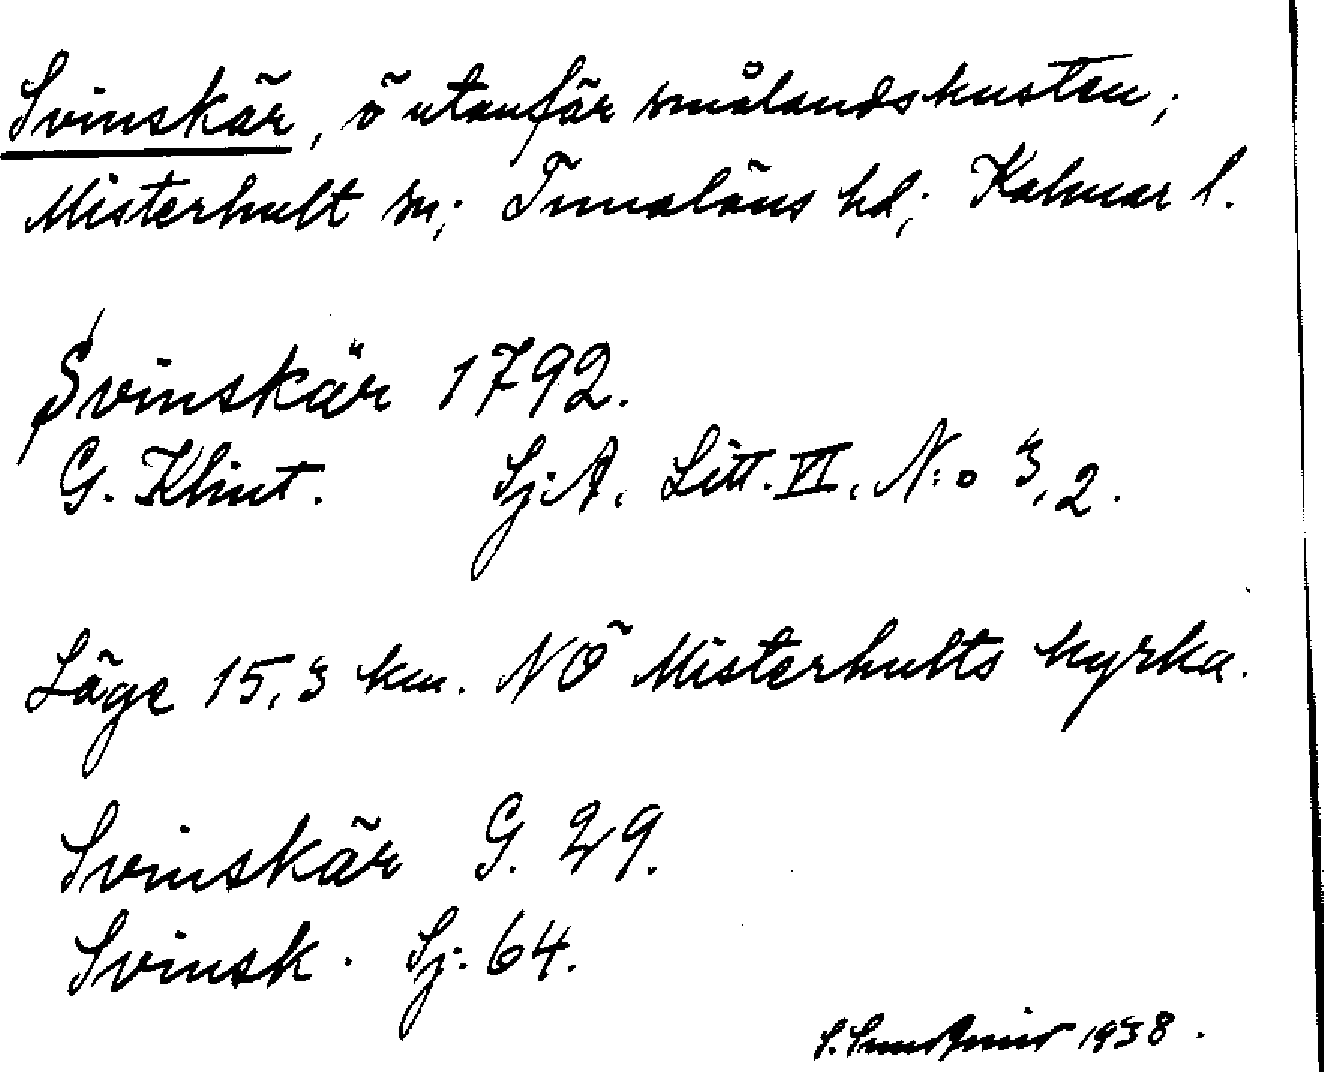 Svinskär, ö utanför smålandskusten;
Misterhult sn; Tunaläns hd; Kalmar l.
Svinskär 1792.
G. Klint. Sj.A. Litt. VI. N:o 3,2.
Läge 15,3 km. NÖ Misterhults kyrka.
Svinskär G. 29.
Svinsk. Sj. 64.
S. 1938.